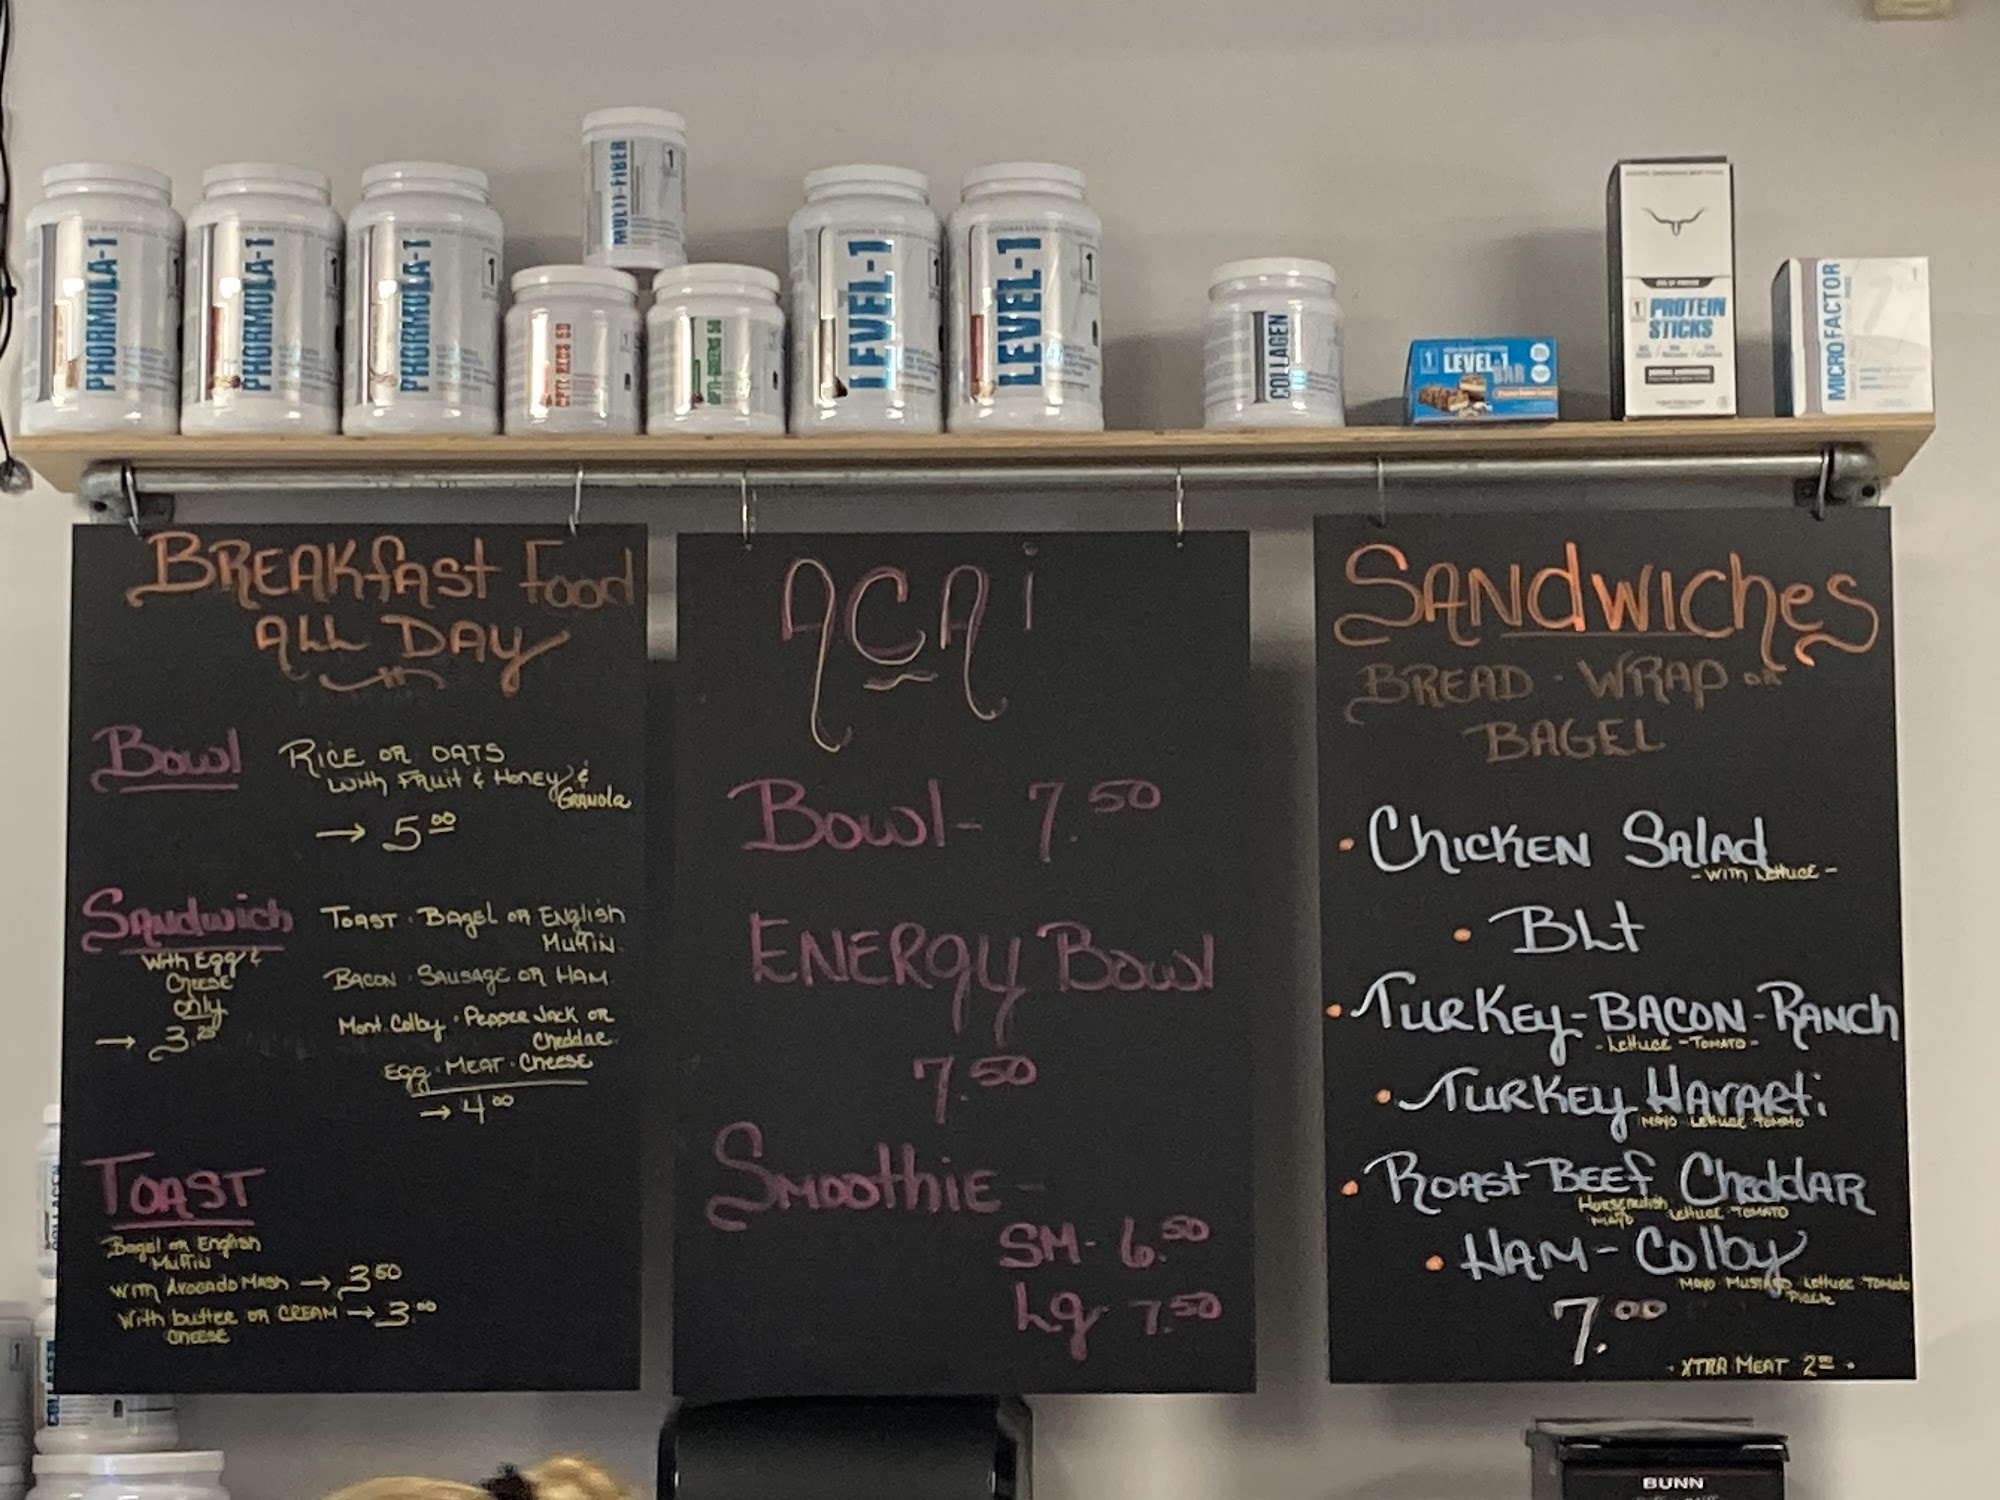 PHORMULA-1
PHORMULA-1
PHORMULA-1
MULTI-FIBER
1
OPTI-REDS 50
OPTI-GREENS 50
LEVEL-1
LEVEL-1
1
COLLAGEN
1 LEVEL-1
BAR
1 PROTEIN
STICKS
MICROFACTOR
BREAKfAST Food
ALL DAY
Bowl
RICE OR OATS
With Fruit & Honey &
GRANola
→ 5.00
Sandwich
With Egg &
Cheese
only
→ 3.25
TOAST · BAgel OR English
Muffin
BACON · SAUSAGE OR HAM
Mont. Colby · Pepper Jack or
Cheddar
Egg · MEAT · Cheese
→ 4.00
TOAST
Bagel or English
Muffin
With Avocado Mash → 3.50
With butter OR CREAM → 3.00
CHEESE
ACAi
Bowl - 7.50
ENERGy Bowl
7.50
Smoothie -
SM - 6.50
Lg 7.50
SANdWICHeS
BREAD · WRAP OR
BAGEL
• CHICKEN SAlAd
- With Lettuce -
• BLt
• TURKEy - BACON - RANCH
- Lettuce - TOMATO -
• TURKEY HAVARti
MAYO Lettuce TOMATO
• ROAST BEEf CHeddAR
Horseradish
MAYO Lettuce TOMATO
• HAM - Colby
MAYO MUSTARD Lettuce TOMATO
Pickle
7.00
· XTRA MEAT 2.00 ·
COLLAGEN
BUNN